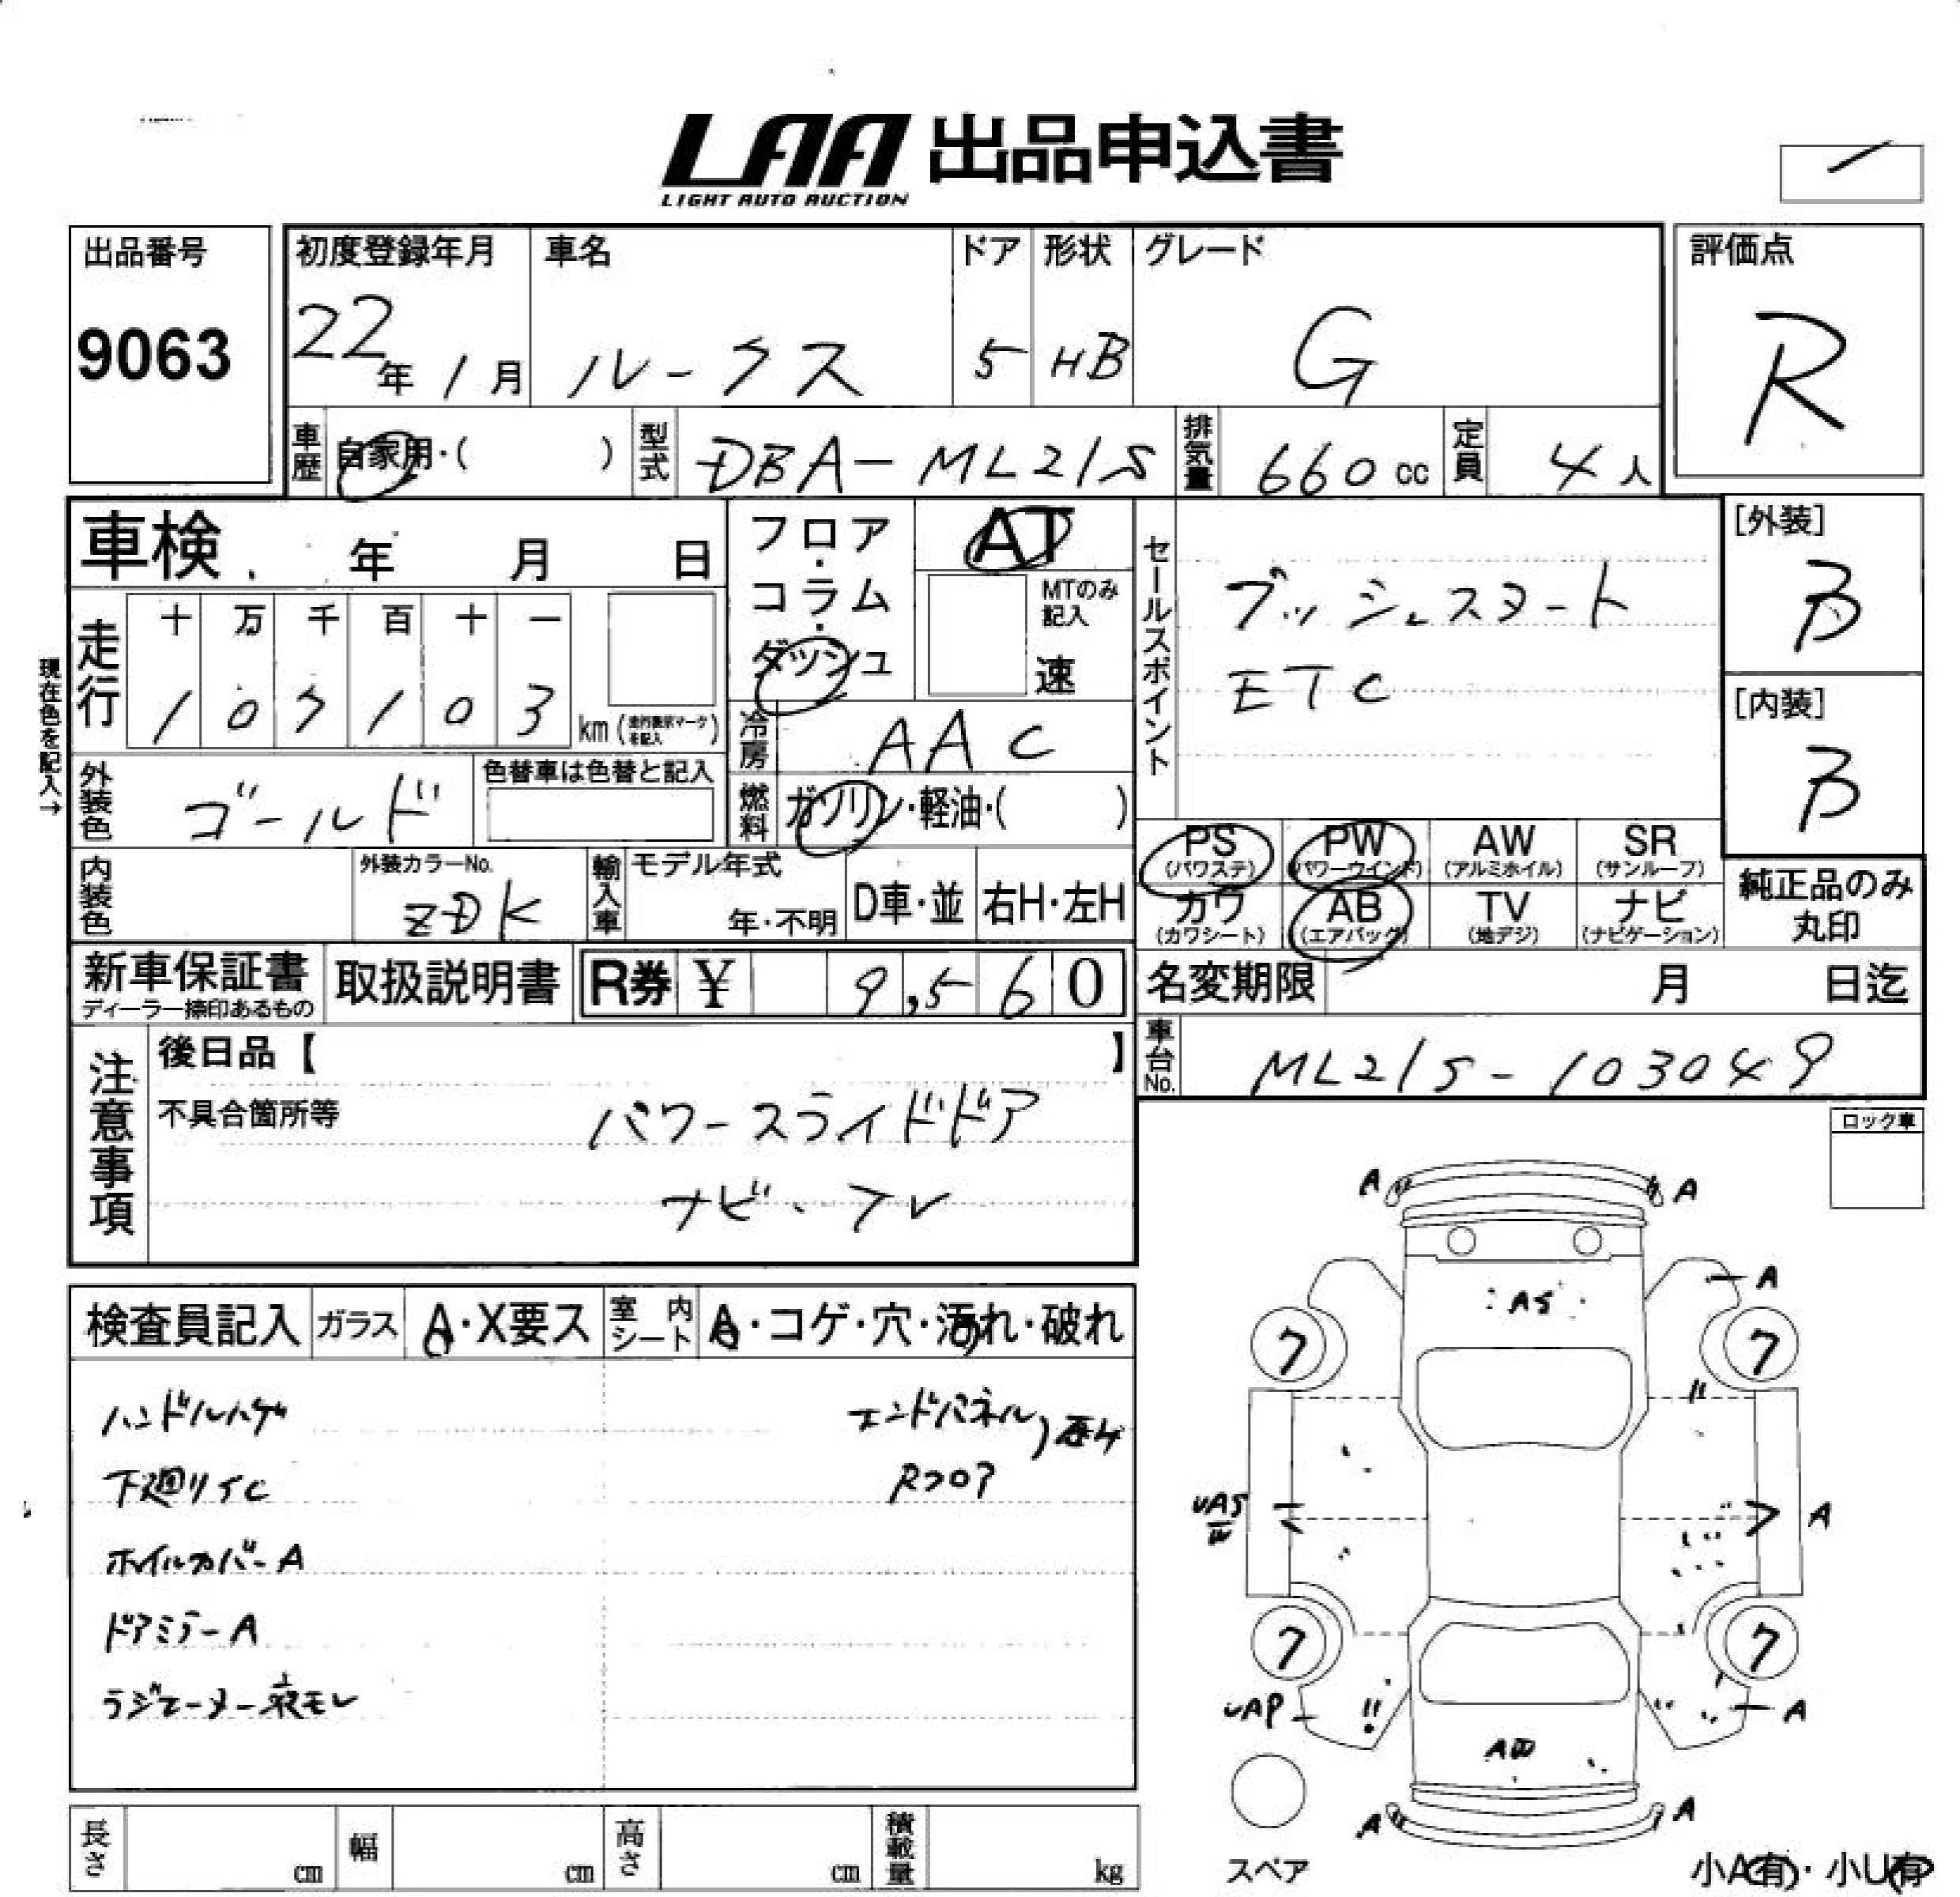 LAA 出品申込書
LIGHT AUTO AUCTION
出品番号
9063
初度登録年月
22年1月
車名
ルークス
ドア
5
形状
HB
グレード
G
評価点
R
車歴
自家用・( )
型式
DBA-ML21S
排気量
660cc
定員
4人
車検 年 月 日
走行
十 万 千 百 十 一
1 0 7 1 0 3 km (走行表示マークを記入)
現在色を記入→
外装色
ゴールド
色替車は色替と記入
内装色
外装カラーNo.
ZDK
輸入車
モデル年式
年・不明
D車・並
右H・左H
フロア・
コラム・
ダッシュ
AT
MTのみ
記入
速
冷房
AAC
燃料
ガソリン・軽油・( )
セールスポイント
プッシュスタート
ETC
[外装]
B
[内装]
B
PS
(パワステ)
PW
(パワーウインド)
AW
(アルミホイル)
SR
(サンルーフ)
カワ
(カワシート)
AB
(エアバッグ)
TV
(地デジ)
ナビ
(ナビゲーション)
純正品のみ
丸印
新車保証書
ディーラー捺印あるもの
取扱説明書
R券 ¥ 9,560
名変期限 月 日迄
車台No.
ML21S-103049
注意事項
後日品【 】
不具合箇所等
パワースライドドア
ナビ、フレ
ロック車
検査員記入
ガラス
A・X要ス
室内シート
A・コゲ・穴・汚れ・破れ
ハンドルハゲ
下廻りイC
ホイルカバーA
ドアミラーA
ラジエーター液モレ
エンドパネル
Rフロア
A A
A
AS
フ フ
UAS
A
フ フ
UAP
A
A
A
スペア
小A有・小U有
長さ cm
幅 cm
高さ cm
積載量 kg